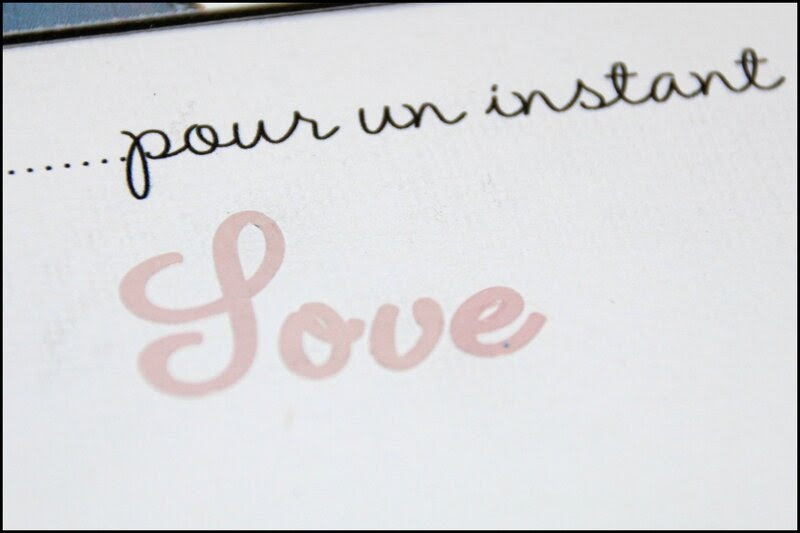 .......pour un instant
Love